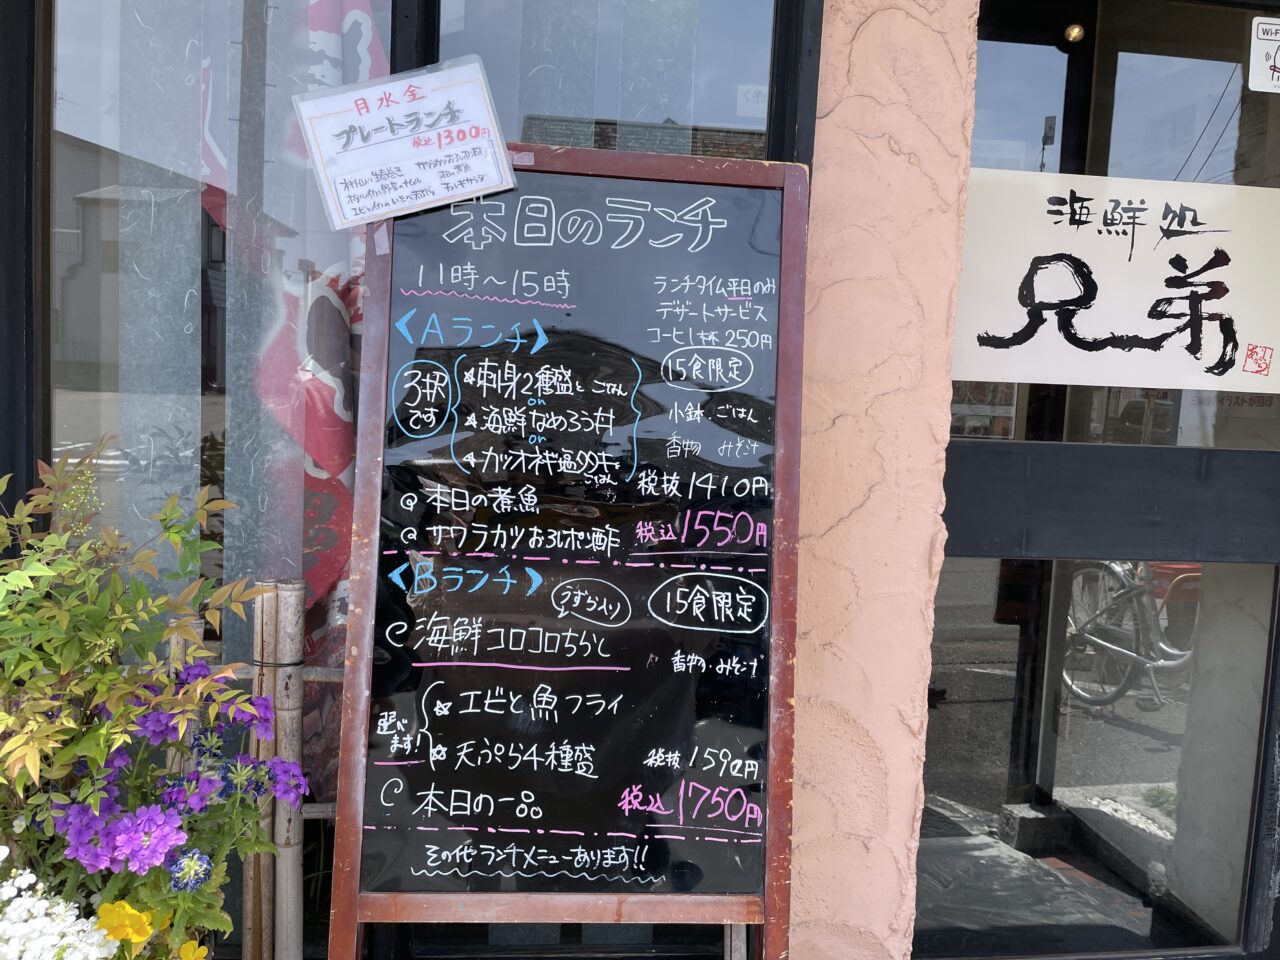 月水金
プレートランチ
税込1300円
本日のランチ
11時〜15時
ランチタイム平日のみ
デザートサービス
コーヒー1杯250円
〈Aランチ〉
15食限定
3択です
刺身2種盛とごはん
or
海鮮なめろう丼
or
カツオネギ塩タタキとごはん
小鉢・ごはん
香物 みそ汁
税抜1410円
本日の煮魚
サワラカツおろしポン酢
税込1550円
〈Bランチ〉
うずら入り
15食限定
海鮮コロコロちらしと
香物・みそ汁
選べます!
エビと魚フライ
天ぷら4種盛
税抜
本日の一品
税込1750円
その他ランチメニューあります!!
海鮮処
兄弟
Wi-F